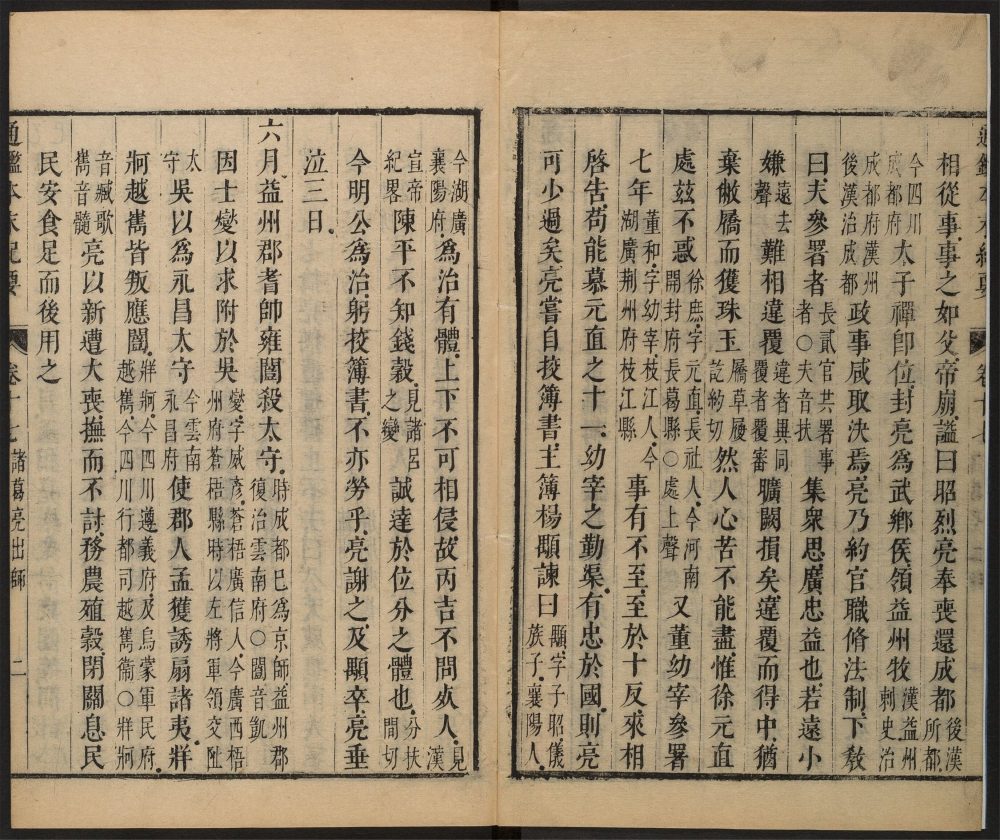 相從事事之如父帝崩謚曰昭烈亮奉喪還成都後漢所都
今四川成都府太子禪卽位封亮爲武鄉侯領益州牧漢益州刺史治
成都府漢州後漢治成都政事咸取決焉亮乃約官職脩法制下教
曰夫參署者長貳官共署事者○夫音扶集衆思廣忠益也若遠小
嫌遠去聲難相違覆違者異同覆者覆審曠闕損矣違覆而得中猶
棄敝屩而獲珠玉屩草履訖約切然人心苦不能盡惟徐元直
處茲不惑徐庶字元直長社人今河南開封府長葛縣○處上聲又董幼宰參署
七年董和字幼宰枝江人今湖廣荆州府枝江縣事有不至至於十反來相
啓告苟能慕元直之十一幼宰之勤渠有忠於國則亮
可少過矣亮嘗自挍簿書主簿楊顒諫曰顒字子昭儀族子襄陽人
今湖廣襄陽府爲治有體上下不可相侵故丙吉不問死人見漢
宣帝紀畧陳平不知錢穀見諸呂之變誠達於位分之體也分扶間切
今明公爲治躬挍簿書不亦勞乎亮謝之及顒卒亮垂
泣三日
六月益州郡耆帥雍闓殺太守時成都已爲京師益州郡復治雲南府○闓音凱
因士燮以求附於吳燮字威彥蒼梧廣信人今廣西梧州府蒼梧縣時以左將軍領交阯
太守吳以爲永昌太守今雲南永昌府使郡人孟獲誘扇諸夷牂
牁越嶲皆叛應闓牂牁今四川遵義府及烏蒙軍民府越嶲今四川行都司越嶲衞○牂牁
音臧歌嶲音髓亮以新遭大喪撫而不討務農殖穀閉關息民
民安食足而後用之
通鑑本末紀要 卷十七 諸葛亮出師 二